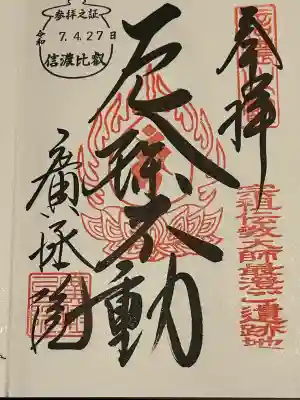 奉拝
宗祖伝教大師最澄ご遺跡地
厄除不動
参拝之証
令和
7.4.27日
信濃比叡
廣拯院